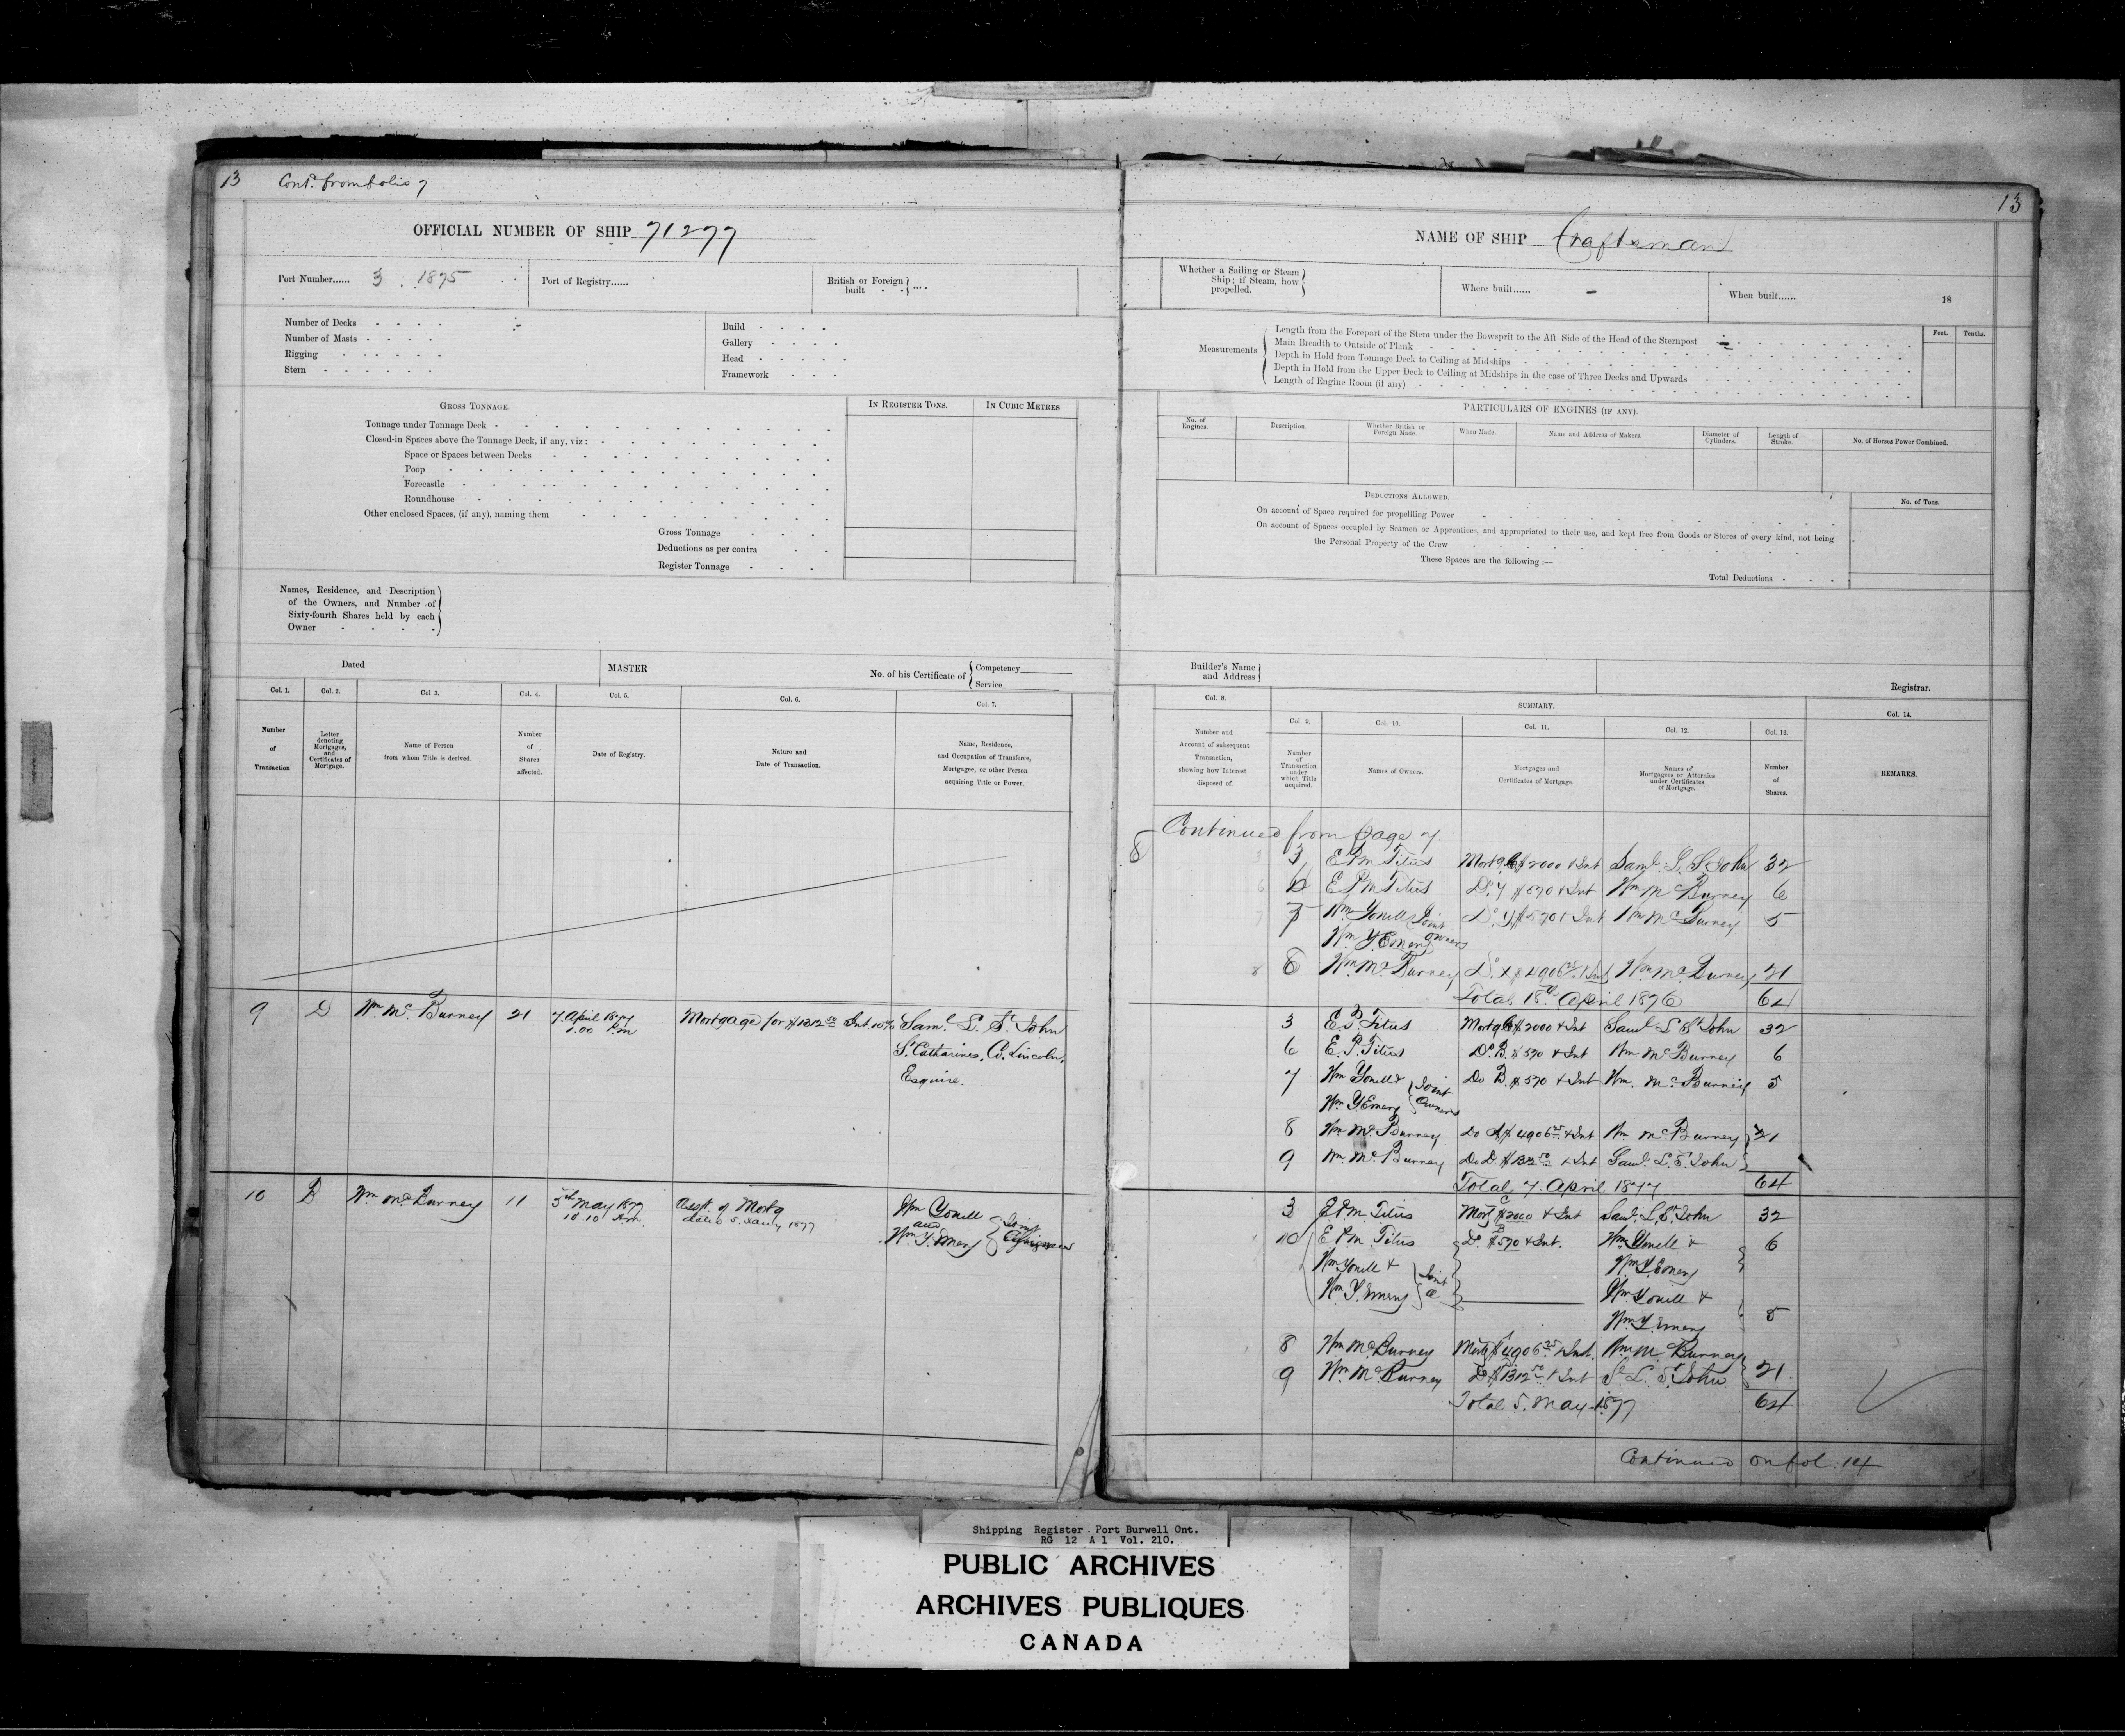 13 Cont. from folio 7
OFFICIAL NUMBER OF SHIP 71277
Port Number...... 3 : 1875
Port of Registry......
British or Foreign built - - } ....
Number of Decks - - - -
Number of Masts - - - -
Rigging - - - - - -
Stern - - - - - -
Build - - - -
Gallery - - - -
Head - - - - -
Framework - - -
GROSS TONNAGE.
IN REGISTER TONS.
IN CUBIC METRES
Tonnage under Tonnage Deck
Closed-in Spaces above the Tonnage Deck, if any, viz:
Space or Spaces between Decks
Poop
Forecastle
Roundhouse
Other enclosed Spaces, (if any), naming them
Gross Tonnage
Deductions as per contra
Register Tonnage
Names, Residence, and Description
of the Owners, and Number of
Sixty-fourth Shares held by each
Owner
Dated
MASTER
No. of his Certificate of { Competency
Service
Col. 1. Col. 2. Col 3. Col. 4. Col. 5. Col. 6. Col. 7.
Number of Transaction
Letter denoting Mortgages, and Certificates of Mortgage.
Name of Person from whom Title is derived.
Number of Shares affected.
Date of Registry.
Nature and Date of Transaction.
Name, Residence, and Occupation of Transferee, Mortgagee, or other Person acquiring Title or Power.
9 D Wm. Mc. Burney 21 7. April 1877 Mortgage for $1312 50 Int 10% Saml. L. St. John
1.00 P.m St. Catharines, Co. Lincoln,
Esquire.
10 B Wm McBurney 11 5th May 1877 Asst. of Mortg Wm Yonell
10.10 Am. dated 5. Jany 1877 and
Wm Y. Emery } Joint
13
NAME OF SHIP Craftsman
Whether a Sailing or Steam
Ship; if Steam, how
propelled.
Where built......
When built...... 18
Measurements
Feet. Tenths.
Length from the Forepart of the Stem under the Bowsprit to the Aft Side of the Head of the Sternpost
Main Breadth to Outside of Plank
Depth in Hold from Tonnage Deck to Ceiling at Midships
Depth in Hold from the Upper Deck to Ceiling at Midships in the case of Three Decks and Upwards
Length of Engine Room (if any)
PARTICULARS OF ENGINES (IF ANY).
No. of Engines.
Description.
Whether British or Foreign Made.
When Made.
Name and Address of Makers.
Diameter of Cylinders.
Length of Stroke.
No. of Horses Power Combined.
DEDUCTIONS ALLOWED.
No. of Tons.
On account of Space required for propellling Power
On account of Spaces occupied by Seamen or Apprentices, and appropriated to their use, and kept free from Goods or Stores of every kind, not being
the Personal Property of the Crew
These Spaces are the following :—
Total Deductions
Builder's Name
and Address
Registrar.
Col. 8.
SUMMARY.
Col. 14.
Col. 9. Col. 10. Col. 11. Col. 12. Col. 13.
Number and Account of subsequent Transaction, shewing how Interest disposed of.
Number of Transaction under which Title acquired.
Names of Owners.
Mortgages and Certificates of Mortgage.
Names of Mortgagees or Attornies under Certificates of Mortgage.
Number of Shares.
REMARKS.
Continued from page 7.
3 E P M Titus Mortg $2000 & Int Saml. L. St. John 32
6 E P M Titus Do. $570 & Int Wm McBurney 6
7 Wm Yonell & Joint Do. $570 & Int Wm McBurney 5
Wm Y. Emery owners
8 Wm McBurney Do. $4906 25 & Int Wm McBurney 21
Total 18th April 1876 64
3 E. P. Titus Mortg $2000 & Int Saml L St John 32
6 E. P. Titus Do. B. $570 & Int Wm McBurney 6
7 Wm Yonell & } Joint Do B. $570 & Int Wm. McBurney 5
Wm Y Emery } Owners
8 Wm McBurney Do A $4906 25 & Int Wm McBurney } 21
9 Wm. McBurney Do D. $1312 50 & Int Saml. L. St. John }
Total 7. April 1877 64
3 E. P. M. Titus Mortg C $2000 & Int Saml. L. St. John 32
10 E P. M. Titus Do. B $570 & Int. Wm Yonell & 6
Wm Yonell & } Joint Wm Y. Emery
Wm Y. Emery } Wm Yonell &
Wm. Y. Emery 5
8 Wm McBurney Mortg $4906 25 & Int. Wm McBurney
9 Wm McBurney D $1312 50 & Int S. L. St. John 21
Total 5. May 1877 64
Continued on fol. 14
Shipping Register Port Burwell Ont.
RG 12 A 1 Vol. 210.
PUBLIC ARCHIVES
ARCHIVES PUBLIQUES
CANADA